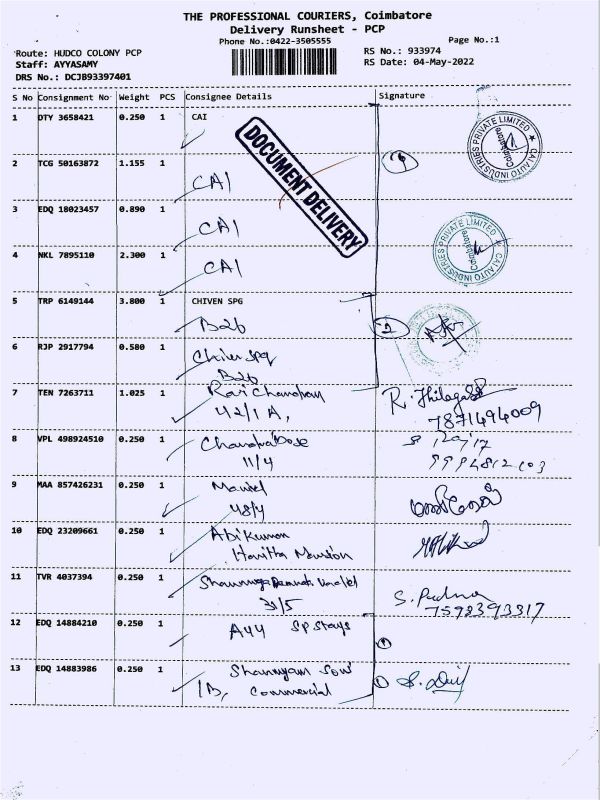 THE PROFESSIONAL COURIERS, Coimbatore
Delivery Runsheet - PCP
Phone No.:0422-3505555
Page No.:1
Route: HUDCO COLONY PCP
RS No.: 933974
Staff: AYYASAMY
RS Date: 04-May-2022
DRS No.: DCJ893397401
S No Consignment No Weight PCS Consignee Details Signature
1 DTY 3658421 0.250 1 CAI
DOCUMENT DELIVERY
CAI AUTO INDUSTRIES PRIVATE LIMITED
Coimbatore
2 TCG 50163872 1.155 1
CAI
3 EDQ 18023457 0.890 1
CAI
CAI AUTO INDUSTRIES PRIVATE LIMITED
Coimbatore
4 NKL 7895110 2.300 1
CAI
5 TRP 6149144 3.800 1 CHIVEN SPG
B26
2
6 RJP 2917794 0.580 1
B26
7 TEN 7263711 1.025 1 Ravi Chandran
42/1 A,
7871494009
8 VPL 498924510 0.250 1 Chandra Bose
11/4
9 MAA 857426231 0.250 1
48/4
10 EDQ 23209661 0.250 1 Abi Kumar
Haritha Mansion
11 TVR 4037394 0.250 1
31/5
S. Padma
7598393317
12 EDQ 14884210 0.250 1
A44 SP Stays
13 EDQ 14883986 0.250 1 Shanmugam Sons
1B, Commercial